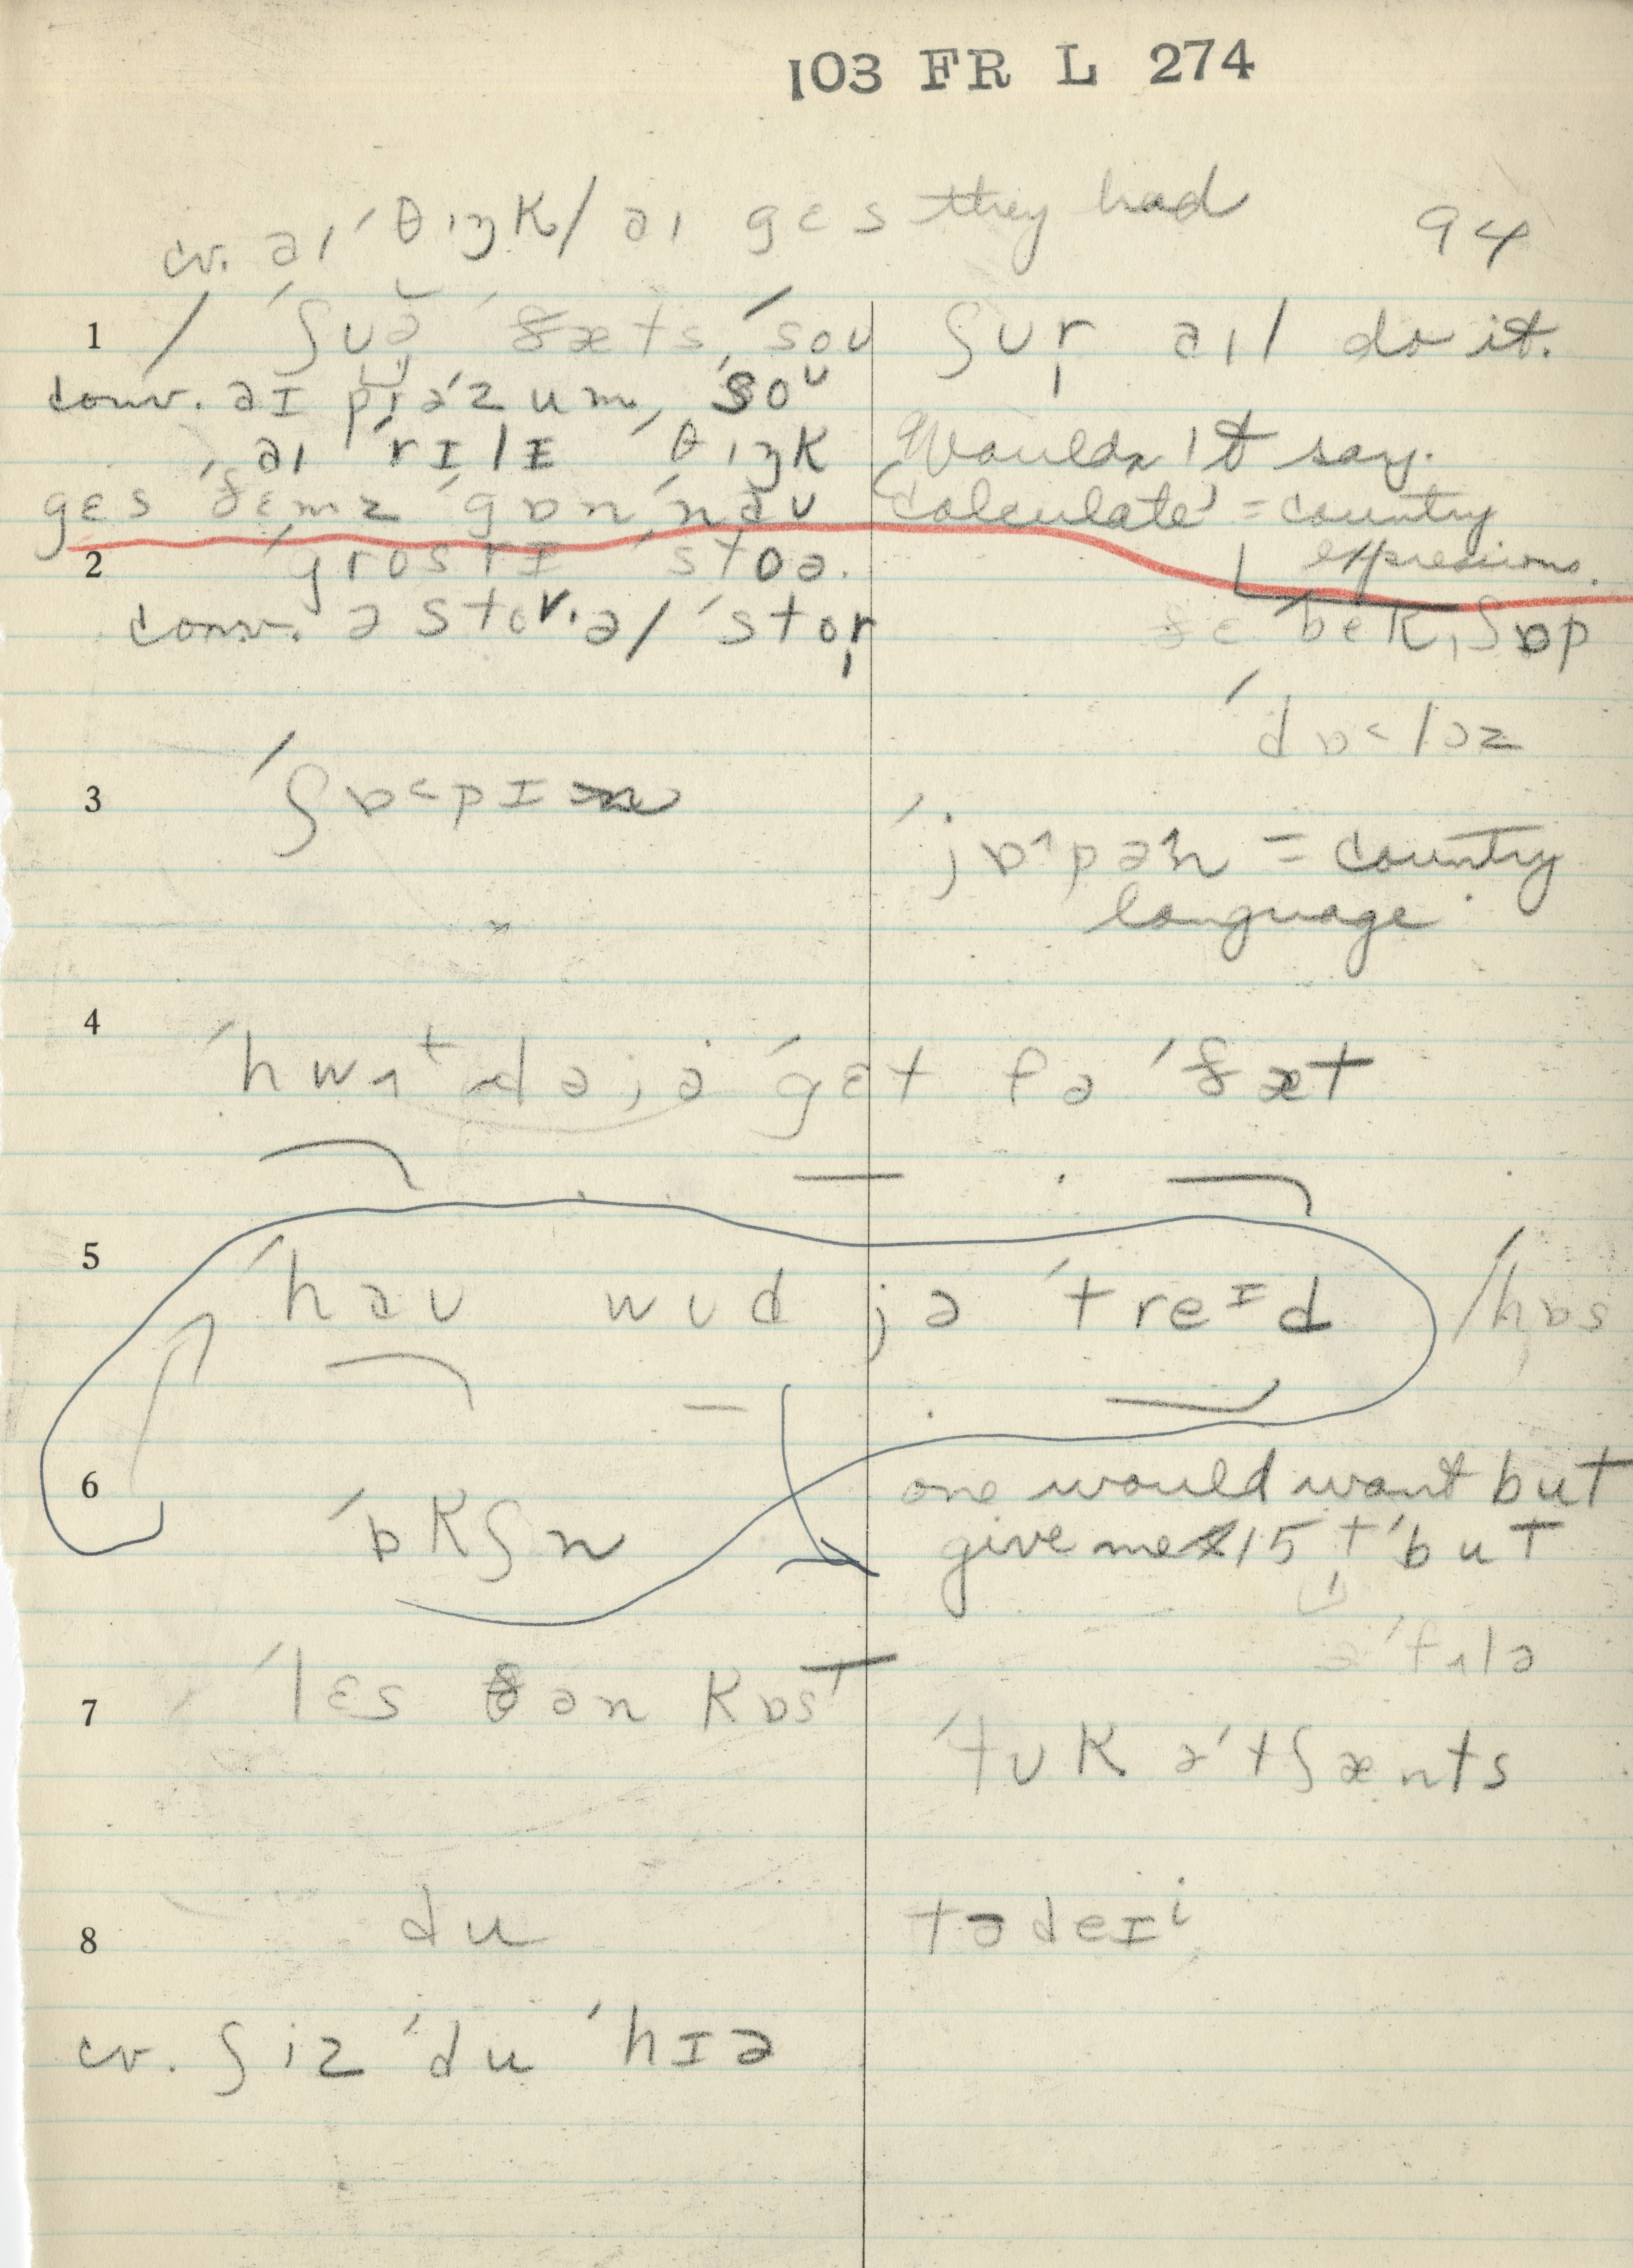 103 FR L 274
cv. əɪ ˈθɪŋk/ əɪ gɛs they had
94
1 / ˈʃʊə̯ ˈðæts ˈsoʊ
ʃʊr̩ əɪl do it.
conv. əɪ prəˈzum, ˈsoᵘ
əɪ ˈrɪlɪ ˈθɪŋk
Wouldn't say.
gɛs ˈðɛmz ˈgɒn ˈnəʊ
"calculate" = country expressions.
2 ˈgrosrɪ ˈstoə.
conv. ə stor.ə/ ˈstor̩
ðɛ ˈbekˌʃɒp
ˈdɒ˂ləz
3 ˈʃɒ˂pɪn
ˈjɒ˄pən = country
language
4 ˈhwʌᵗ dəjə ˈgɛt fə ˈðæt
5 ˈhəʊ wʊd jə ˈtreᶦd /hɒs
6 ˈɒkʃn
one would want but
give me $15 tˈbut
əˈfɪlə
7 ˈlɛs ðən kɒsT
ˈtʊk əˈtʃænts
8 du
tədeɪⁱ
cv. ʃiz ˈdu ˈhɪə